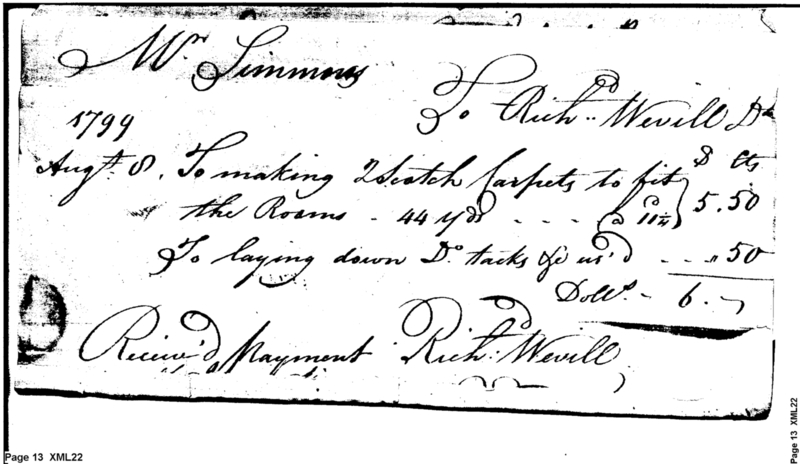 Mr Simmons
To Richd. Wevill Dr
1799
$ Cts
Augt. 8. To making 2 Scotch Carpets to fit
the Rooms - 44 yds - - - @ 12½ } 5.50
To laying down Do. tacks &c us'd - - " 50
Dolls. - 6.-
Receiv'd Payment Richd. Wevill
Page 13 XML22
Page 13 XML22